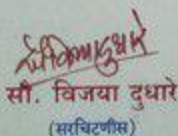 सौ. विजया दुधारे
(सरचिटणीस)